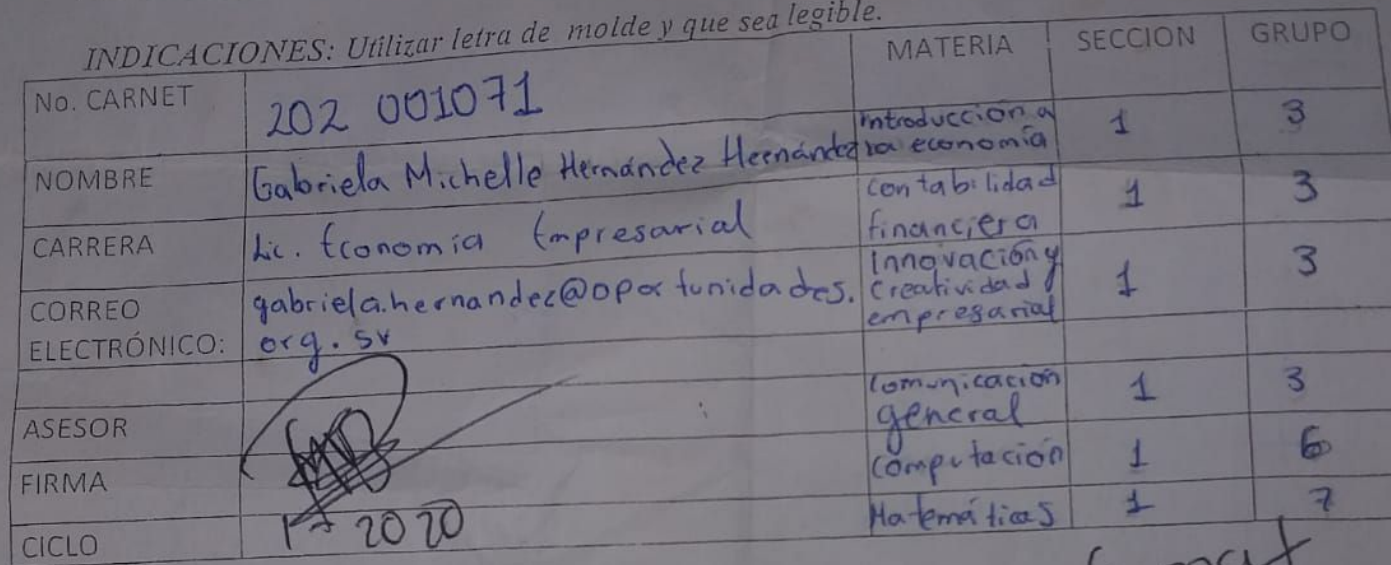 INDICACIONES: Utilizar letra de molde y que sea legible.
MATERIA SECCION GRUPO
No. CARNET 202 001071
introducción a la economía 1 3
NOMBRE Gabriela Michelle Hernández Hernández
contabilidad financiera 1 3
CARRERA Lic. Economía Empresarial
Innovación y creatividad empresarial 1 3
CORREO ELECTRÓNICO: gabriela.hernandez@oportunidades.
org.sv
Comunicación general 1 3
ASESOR
Computación 1 6
FIRMA
Matemáticas 1 7
CICLO 2020